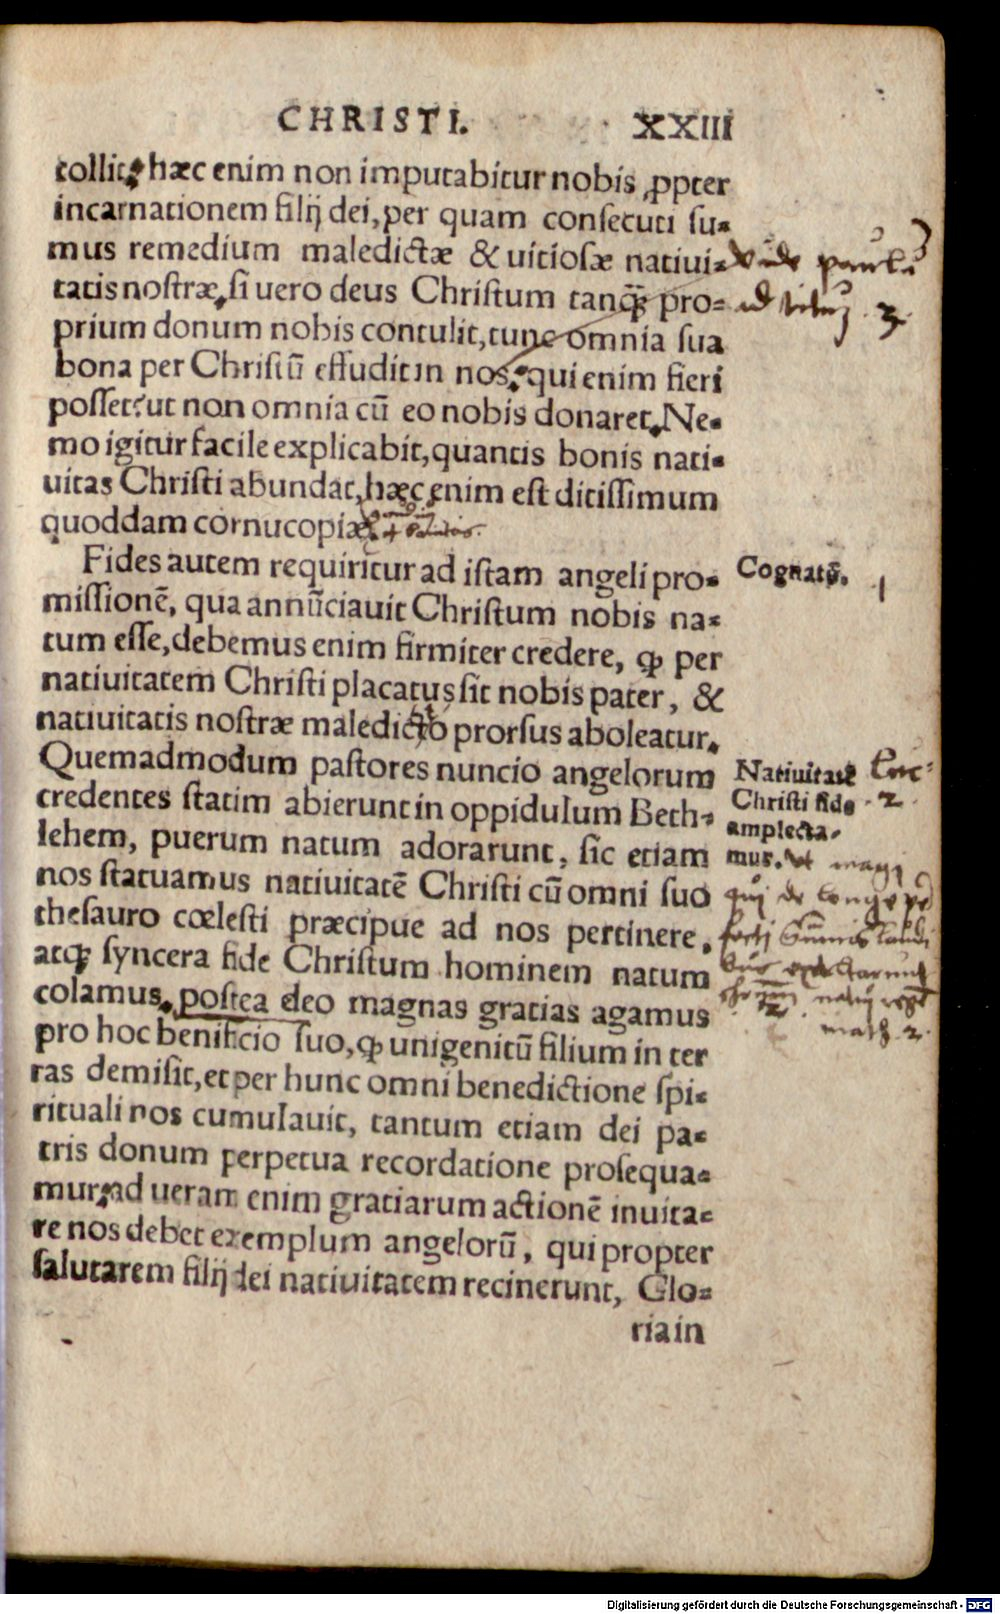 CHRISTI. XXIII
tollit, hæc enim non imputabitur nobis ꝓpter
incarnationem filij dei, per quam consecuti su-
mus remedium maledictæ & uitiosæ natiui-
tatis nostræ, si uero deus Christum tanꝙ̃ pro-
prium donum nobis contulit, tunc omnia sua
bona per Christū effudit in nos, qui enim fieri
posset, ut non omnia cū eo nobis donaret. Ne-
mo igitur facile explicabit, quantis bonis nati-
uitas Christi abundat, hæc enim est ditissimum
quoddam cornucopiæ
Fides autem requiritur ad istam angeli pro-
missionē, qua annūciauit Christum nobis na-
tum esse, debemus enim firmiter credere, ꝙ per
natiuitatem Christi placatus sit nobis pater, &
natiuitatis nostræ maledicto prorsus aboleatur.
Quemadmodum pastores nuncio angelorum
credentes statim abierunt in oppidulum Beth-
lehem, puerum natum adorarunt, sic etiam
nos statuamus natiuitatē Christi cū omni suo
thesauro cœlesti præcipue ad nos pertinere,
atꝙ syncera fide Christum hominem natum
colamus, postea deo magnas gratias agamus
pro hoc benificio suo, ꝙ unigenitū filium in ter
ras demisit, et per hunc omni benedictione spi-
rituali nos cumulauit, tantum etiam dei pa-
tris donum perpetua recordatione prosequa-
mur, ad ueram enim gratiarum actionē inuita-
re nos debet exemplum angelorū, qui propter
salutarem filij dei natiuitatem recinerunt, Glo-
ria in
vide pauli
ad titum 3.
Cognatū. 1
Natiuitatē
Christi fide
amplecta-
mur.
Luc
2.
Vt magi
qui de longe
laudi
math 2.
Digitalisierung gefördert durch die Deutsche Forschungsgemeinschaft - DFG